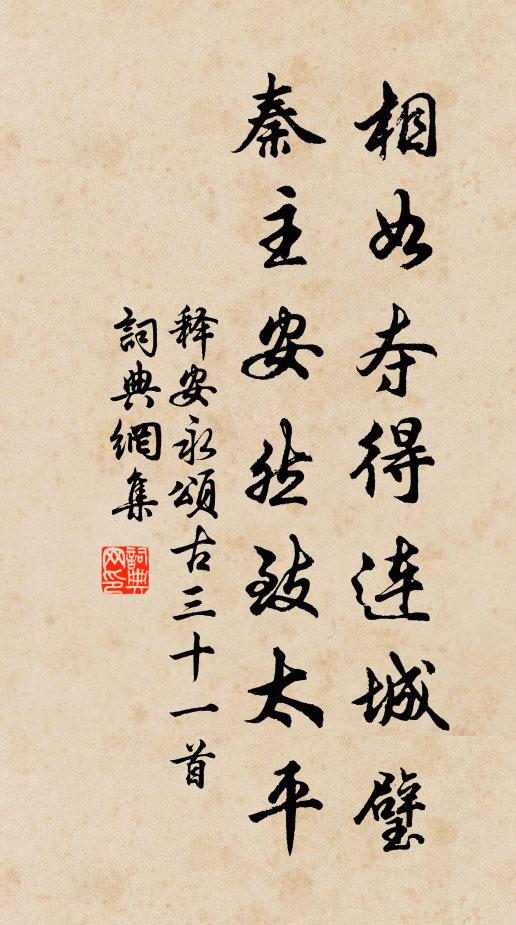 相如夺得连城璧
秦主安然致太平
释安永颂古三十一首
詞典網集
詞典网印